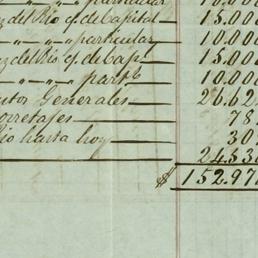 particular 10.000
del Rio cf. de Capital 15.000
" " " particular 10.000
z del Rio cf. de Cap. 15.000
" " " parte 10.000
Generales 26.62
orretajes 78
hasta hoy 30
24.530
$ 152.97